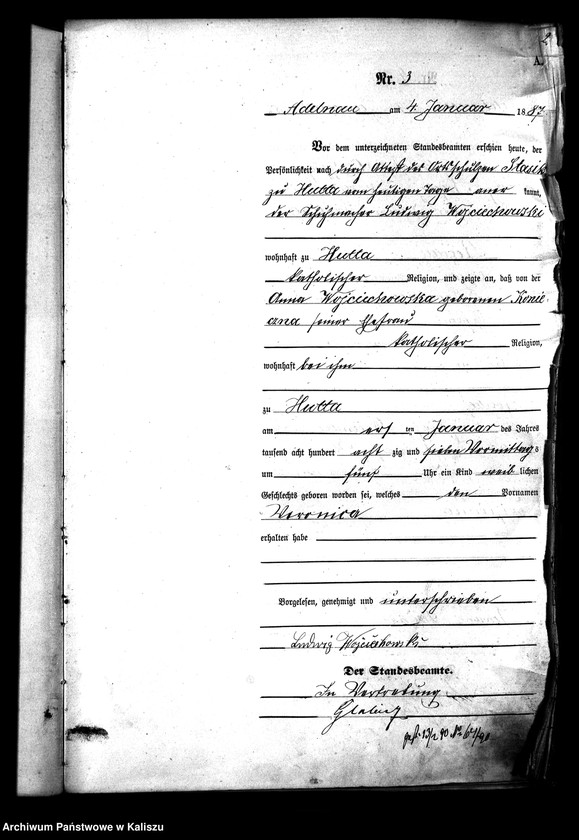 2
A.
Nr. 3
Adelnau am 4 Januar 1887
Vor dem unterzeichneten Standesbeamten erschien heute, der
Persönlichkeit nach durch Attest des Ortsschulzen Stasik
zu Hutta vom heutigen Tage aner kannt,
der Schuhmacher Ludwig Wojciechowski
wohnhaft zu Hutta
katholischer Religion, und zeigte an, daß von der
Anna Wojciechowska geborenen Konie
czna seiner Ehefrau
katholischer Religion,
wohnhaft bei ihm
zu Hutta
am ersten Januar des Jahres
tausend acht hundert acht zig und sieben Vormittags
um fünf Uhr ein Kind weiblichen
Geschlechts geboren worden sei, welches den Vornamen
Veronica
erhalten habe
Vorgelesen, genehmigt und unterschrieben
Ludwig Wojciechowski
Der Standesbeamte.
In Vertretung
Archiwum Państwowe w Kaliszu